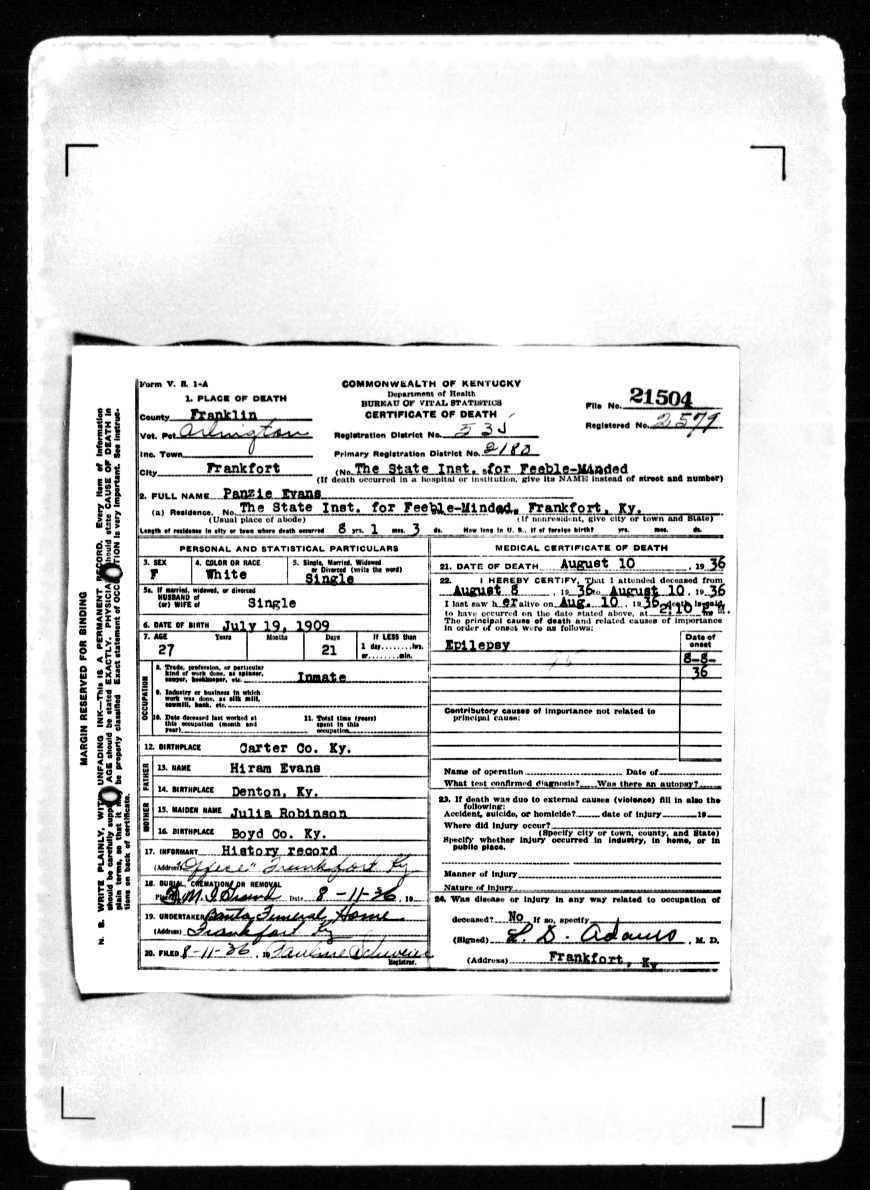 Form V. S. 1-A
COMMONWEALTH OF KENTUCKY
Department of Health
BUREAU OF VITAL STATISTICS
CERTIFICATE OF DEATH
File No. 21504
Registered No. 2579
1. PLACE OF DEATH
County Franklin
Vot. Pct. Arlington
Registration District No. 535
Inc. Town
Primary Registration District No. 2180
City Frankfort (No. The State Inst. for Feeble-Minded
(If death occurred in a hospital or institution, give its NAME instead of street and number)
2. FULL NAME Panzie Evans
(a) Residence. No. The State Inst. for Feeble-Minded, Frankfort, Ky.
(Usual place of abode) (If nonresident, give city or town and State)
Length of residence in city or town where death occurred 8 yrs. 1 mos. 3 ds. How long in U. S., if of foreign birth? yrs. mos. ds.
PERSONAL AND STATISTICAL PARTICULARS
3. SEX F
4. COLOR OR RACE White
5. Single, Married, Widowed or Divorced (write the word) Single
5a. If married, widowed, or divorced
HUSBAND of
(or) WIFE of Single
6. DATE OF BIRTH July 19, 1909
7. AGE Years Months Days If LESS than
27 21 1 day........hrs.
or........min.
OCCUPATION
8. Trade, profession, or particular kind of work done, as spinner, sawyer, bookkeeper, etc. Inmate
9. Industry or business in which work was done, as silk mill, sawmill, bank, etc.
10. Date deceased last worked at this occupation (month and year)
11. Total time (years) spent in this occupation
12. BIRTHPLACE Carter Co. Ky.
FATHER
13. NAME Hiram Evans
14. BIRTHPLACE Denton, Ky.
MOTHER
15. MAIDEN NAME Julia Robinson
16. BIRTHPLACE Boyd Co. Ky.
17. INFORMANT History record
(Address) "Office" Frankfort Ky
18. BURIAL, CREMATION OR REMOVAL
Date 8-11-36, 19
19. UNDERTAKER Funeral Home
(Address) Frankfort Ky
20. FILED 8-11-36, 19 Pauline
Registrar.
MEDICAL CERTIFICATE OF DEATH
21. DATE OF DEATH August 10, 1936
22. I HEREBY CERTIFY, That I attended deceased from
August 8, 1936 to August 10, 1936
I last saw her alive on Aug. 10, 1936, death is said
to have occurred on the date stated above, at 2:10 m.
The principal cause of death and related causes of importance
in order of onset were as follows:
Date of onset
Epilepsy
8-8-
36
Contributory causes of importance not related to
principal cause:
Name of operation Date of
What test confirmed diagnosis? Was there an autopsy?
23. If death was due to external causes (violence) fill in also the
following:
Accident, suicide, or homicide? date of injury 19
Where did injury occur?
(Specify city or town, county, and State)
Specify whether injury occurred in industry, in home, or in
public place.
Manner of injury
Nature of injury
24. Was disease or injury in any way related to occupation of
deceased? No If so, specify
(Signed) L. D. Adams, M. D.
(Address) Frankfort, Ky
MARGIN RESERVED FOR BINDING